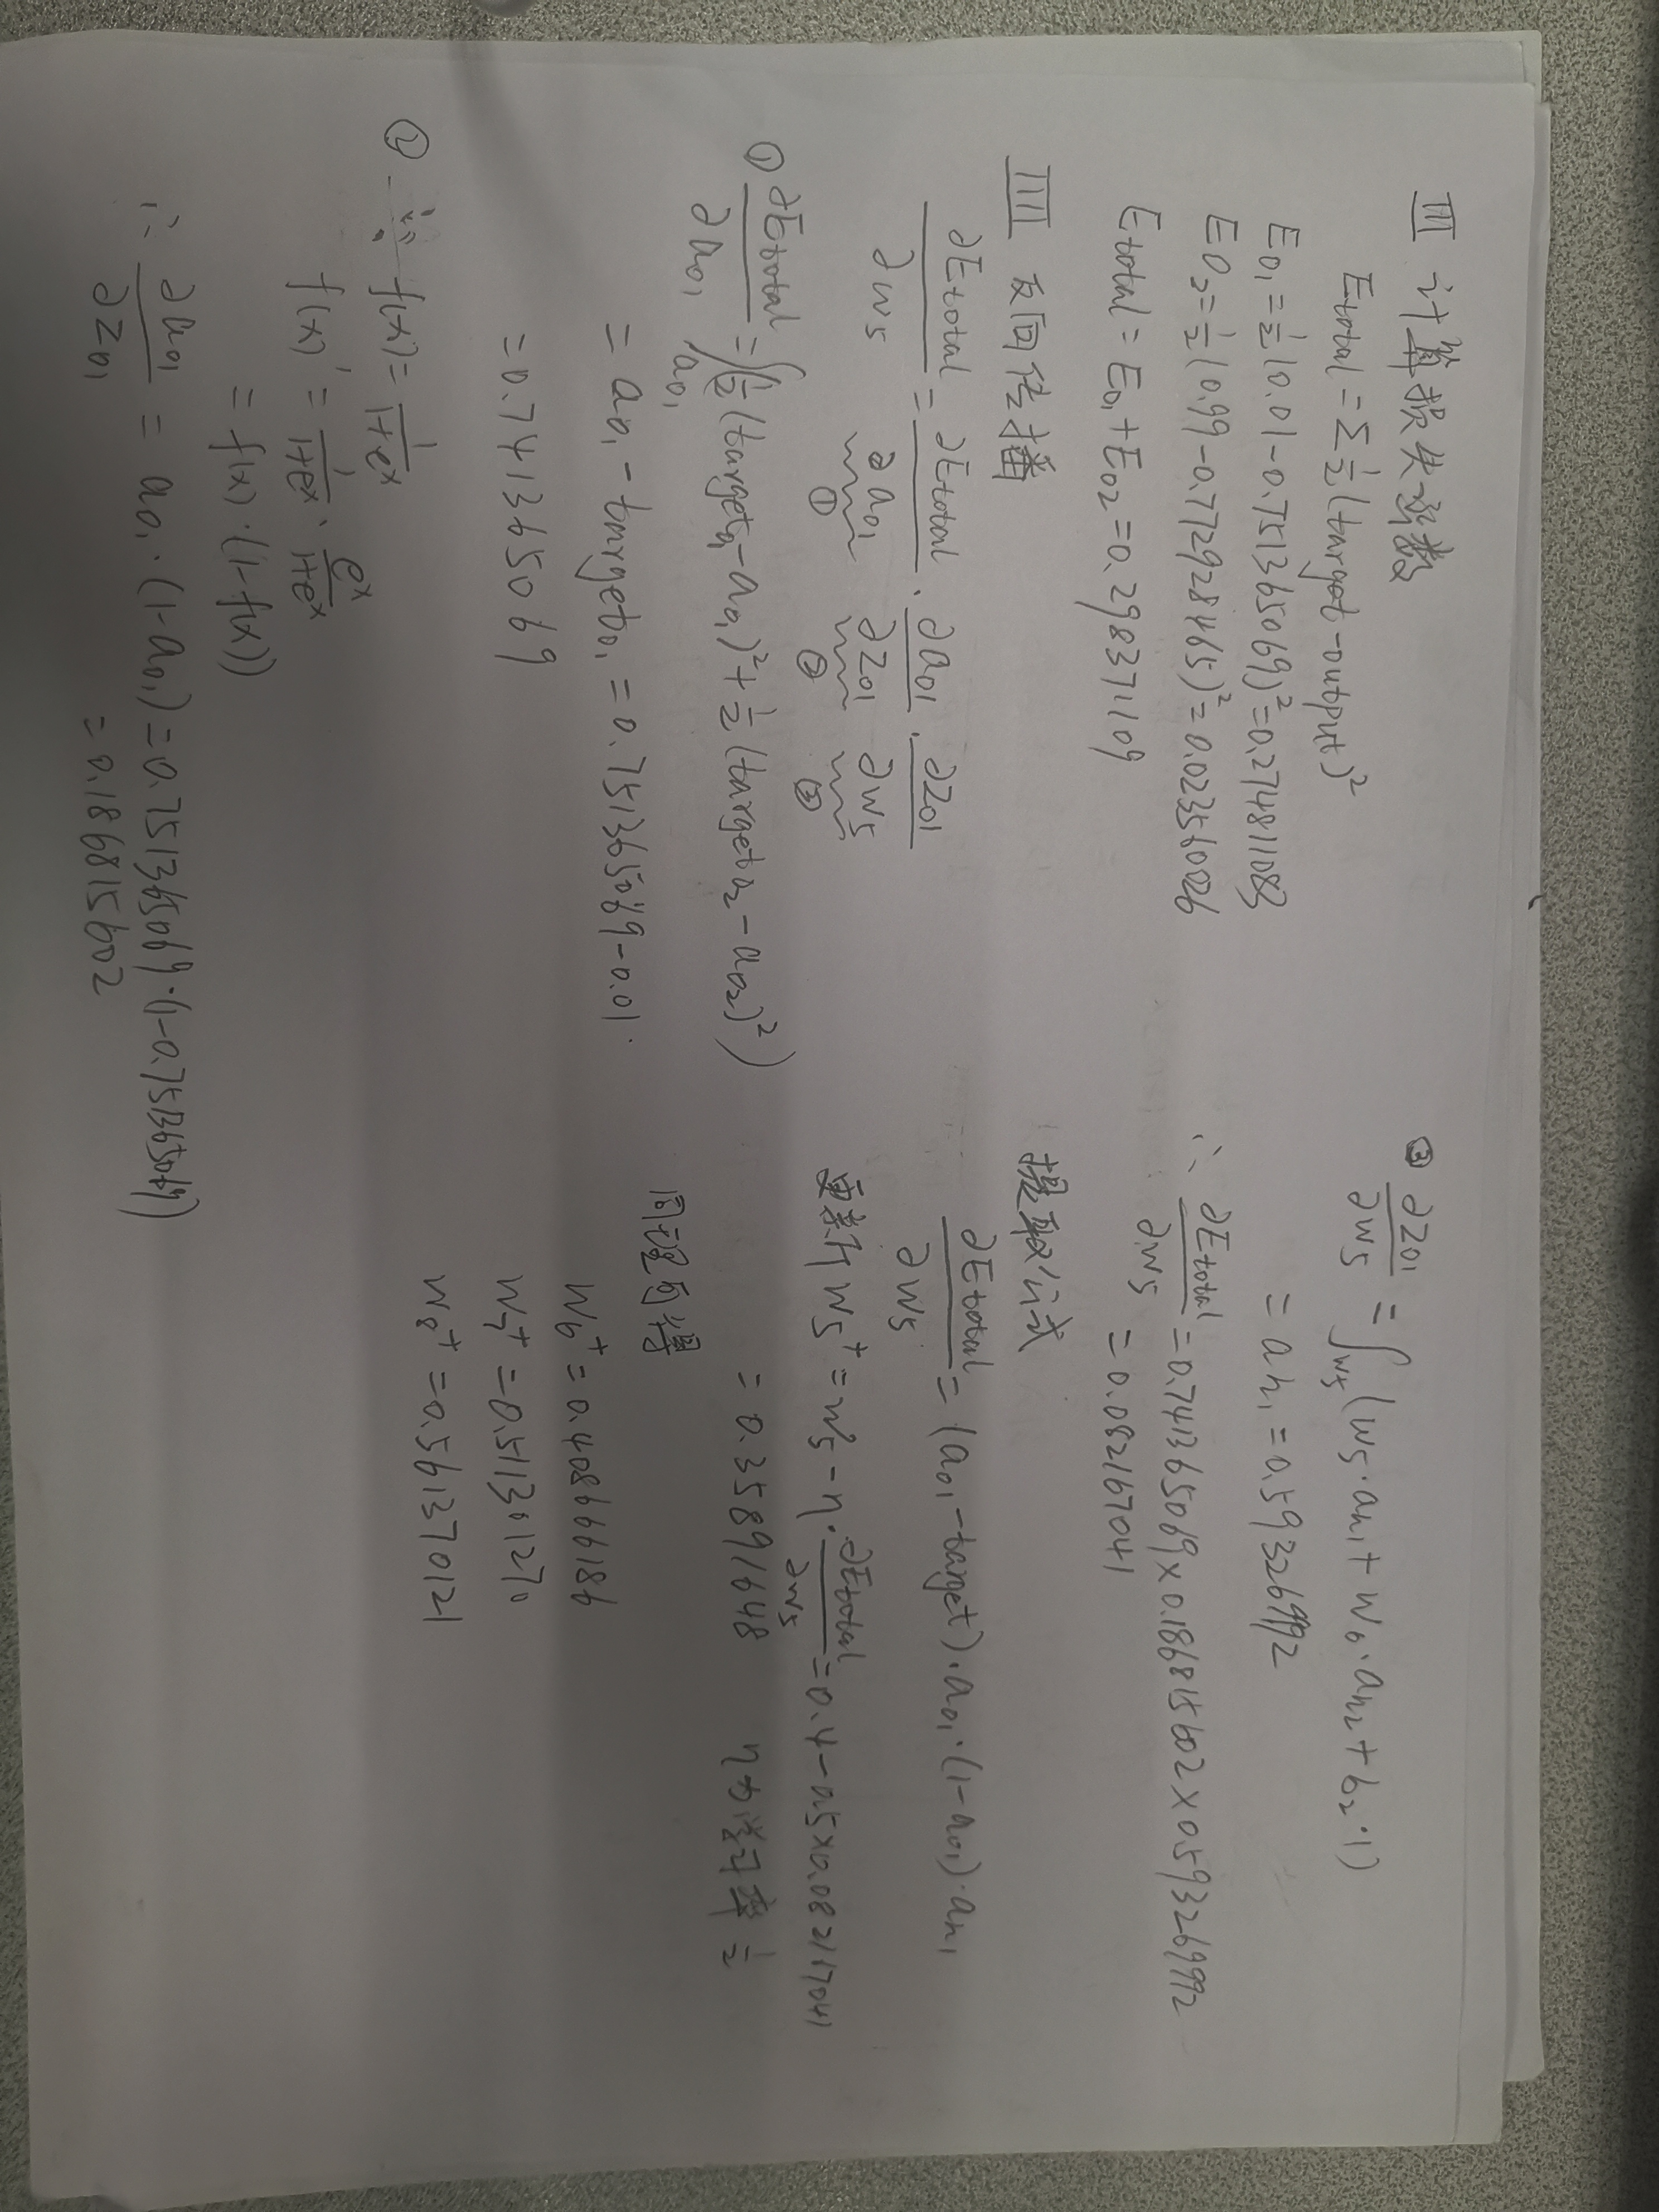 III 计算损失函数
Etotal = Σ ½(target-output)²
Eo₁ = ½(0.01-0.751365069)² = 0.274811083
Eo₂ = ½(0.99-0.772928465)² = 0.023560026
Etotal = Eo₁+Eo₂ = 0.298371109
III 反向传播
∂Etotal/∂w5 = ∂Etotal/∂ao1 · ∂ao1/∂zo1 · ∂zo1/∂w5
① ② ③
① ∂Etotal/∂ao₁ = ∫ao₁(½(targeto₁-ao₁)²+½(targeto₂-ao₂)²)
= ao₁-targeto₁ = 0.751365069-0.01
= 0.741365069
② ∵ f(x) = 1/(1+eˣ)
f(x)' = 1/(1+eˣ) · eˣ/(1+eˣ)
= f(x)·(1-f(x))
∴ ∂ao₁/∂zo₁ = ao₁·(1-ao₁) = 0.751365069·(1-0.751365069)
= 0.186815602
③ ∂zo₁/∂w5 = ∫w5(w5·ah₁+w6·ah₂+b₂·1)
= ah₁ = 0.593269992
∴ ∂Etotal/∂w5 = 0.741365069×0.186815602×0.593269992
= 0.082167041
提取公式
∂Etotal/∂w5 = (ao₁-target)·ao₁·(1-ao₁)·ah₁
更新w5⁺ = w5-η·∂Etotal/∂w5 = 0.4-0.5×0.082167041
= 0.35891648 η为学习率 ½
同理可得
w6⁺ = 0.408666186
w7⁺ = 0.511301270
w8⁺ = 0.561370121